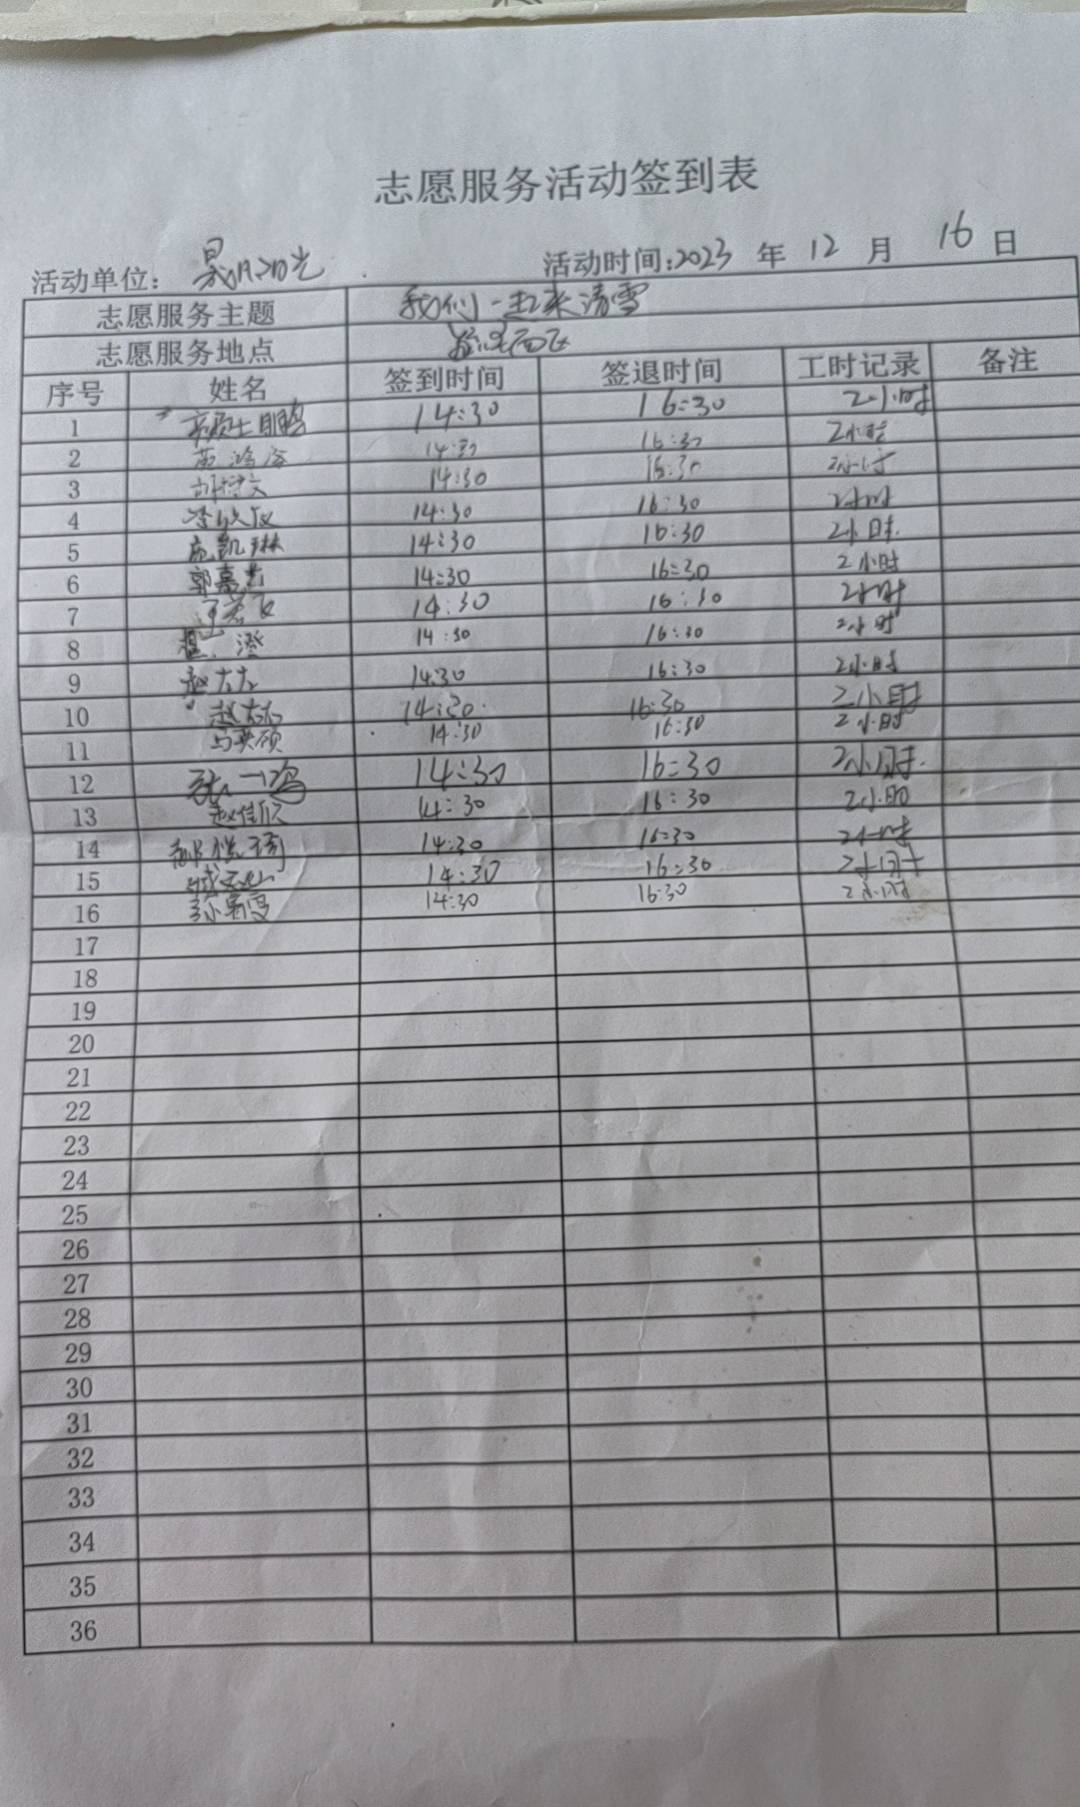 志愿服务活动签到表
活动单位: 活动时间:2023 年 12 月 16 日
志愿服务主题 我们一起来清雪
志愿服务地点
序号 姓名 签到时间 签退时间 工时记录 备注
1 14:30 16:30 2小时
2 14:30 16:30 2小时
3 14:30 16:30 2小时
4 14:30 16:30 2小时
5 凯琳 14:30 16:30 2小时
6 郭嘉 14:30 16:30 2小时
7 14:30 16:30 2小时
8 澄 14:30 16:30 2小时
9 赵 14:30 16:30 2小时
10 赵 14:30 16:30 2小时
11 14:30 16:30 2小时
12 张一鸣 14:30 16:30 2小时
13 赵佳欣 14:30 16:30 2小时
14 14:30 16:30 2小时
15 14:30 16:30 2小时
16 14:30 16:30 2小时
17
18
19
20
21
22
23
24
25
26
27
28
29
30
31
32
33
34
35
36